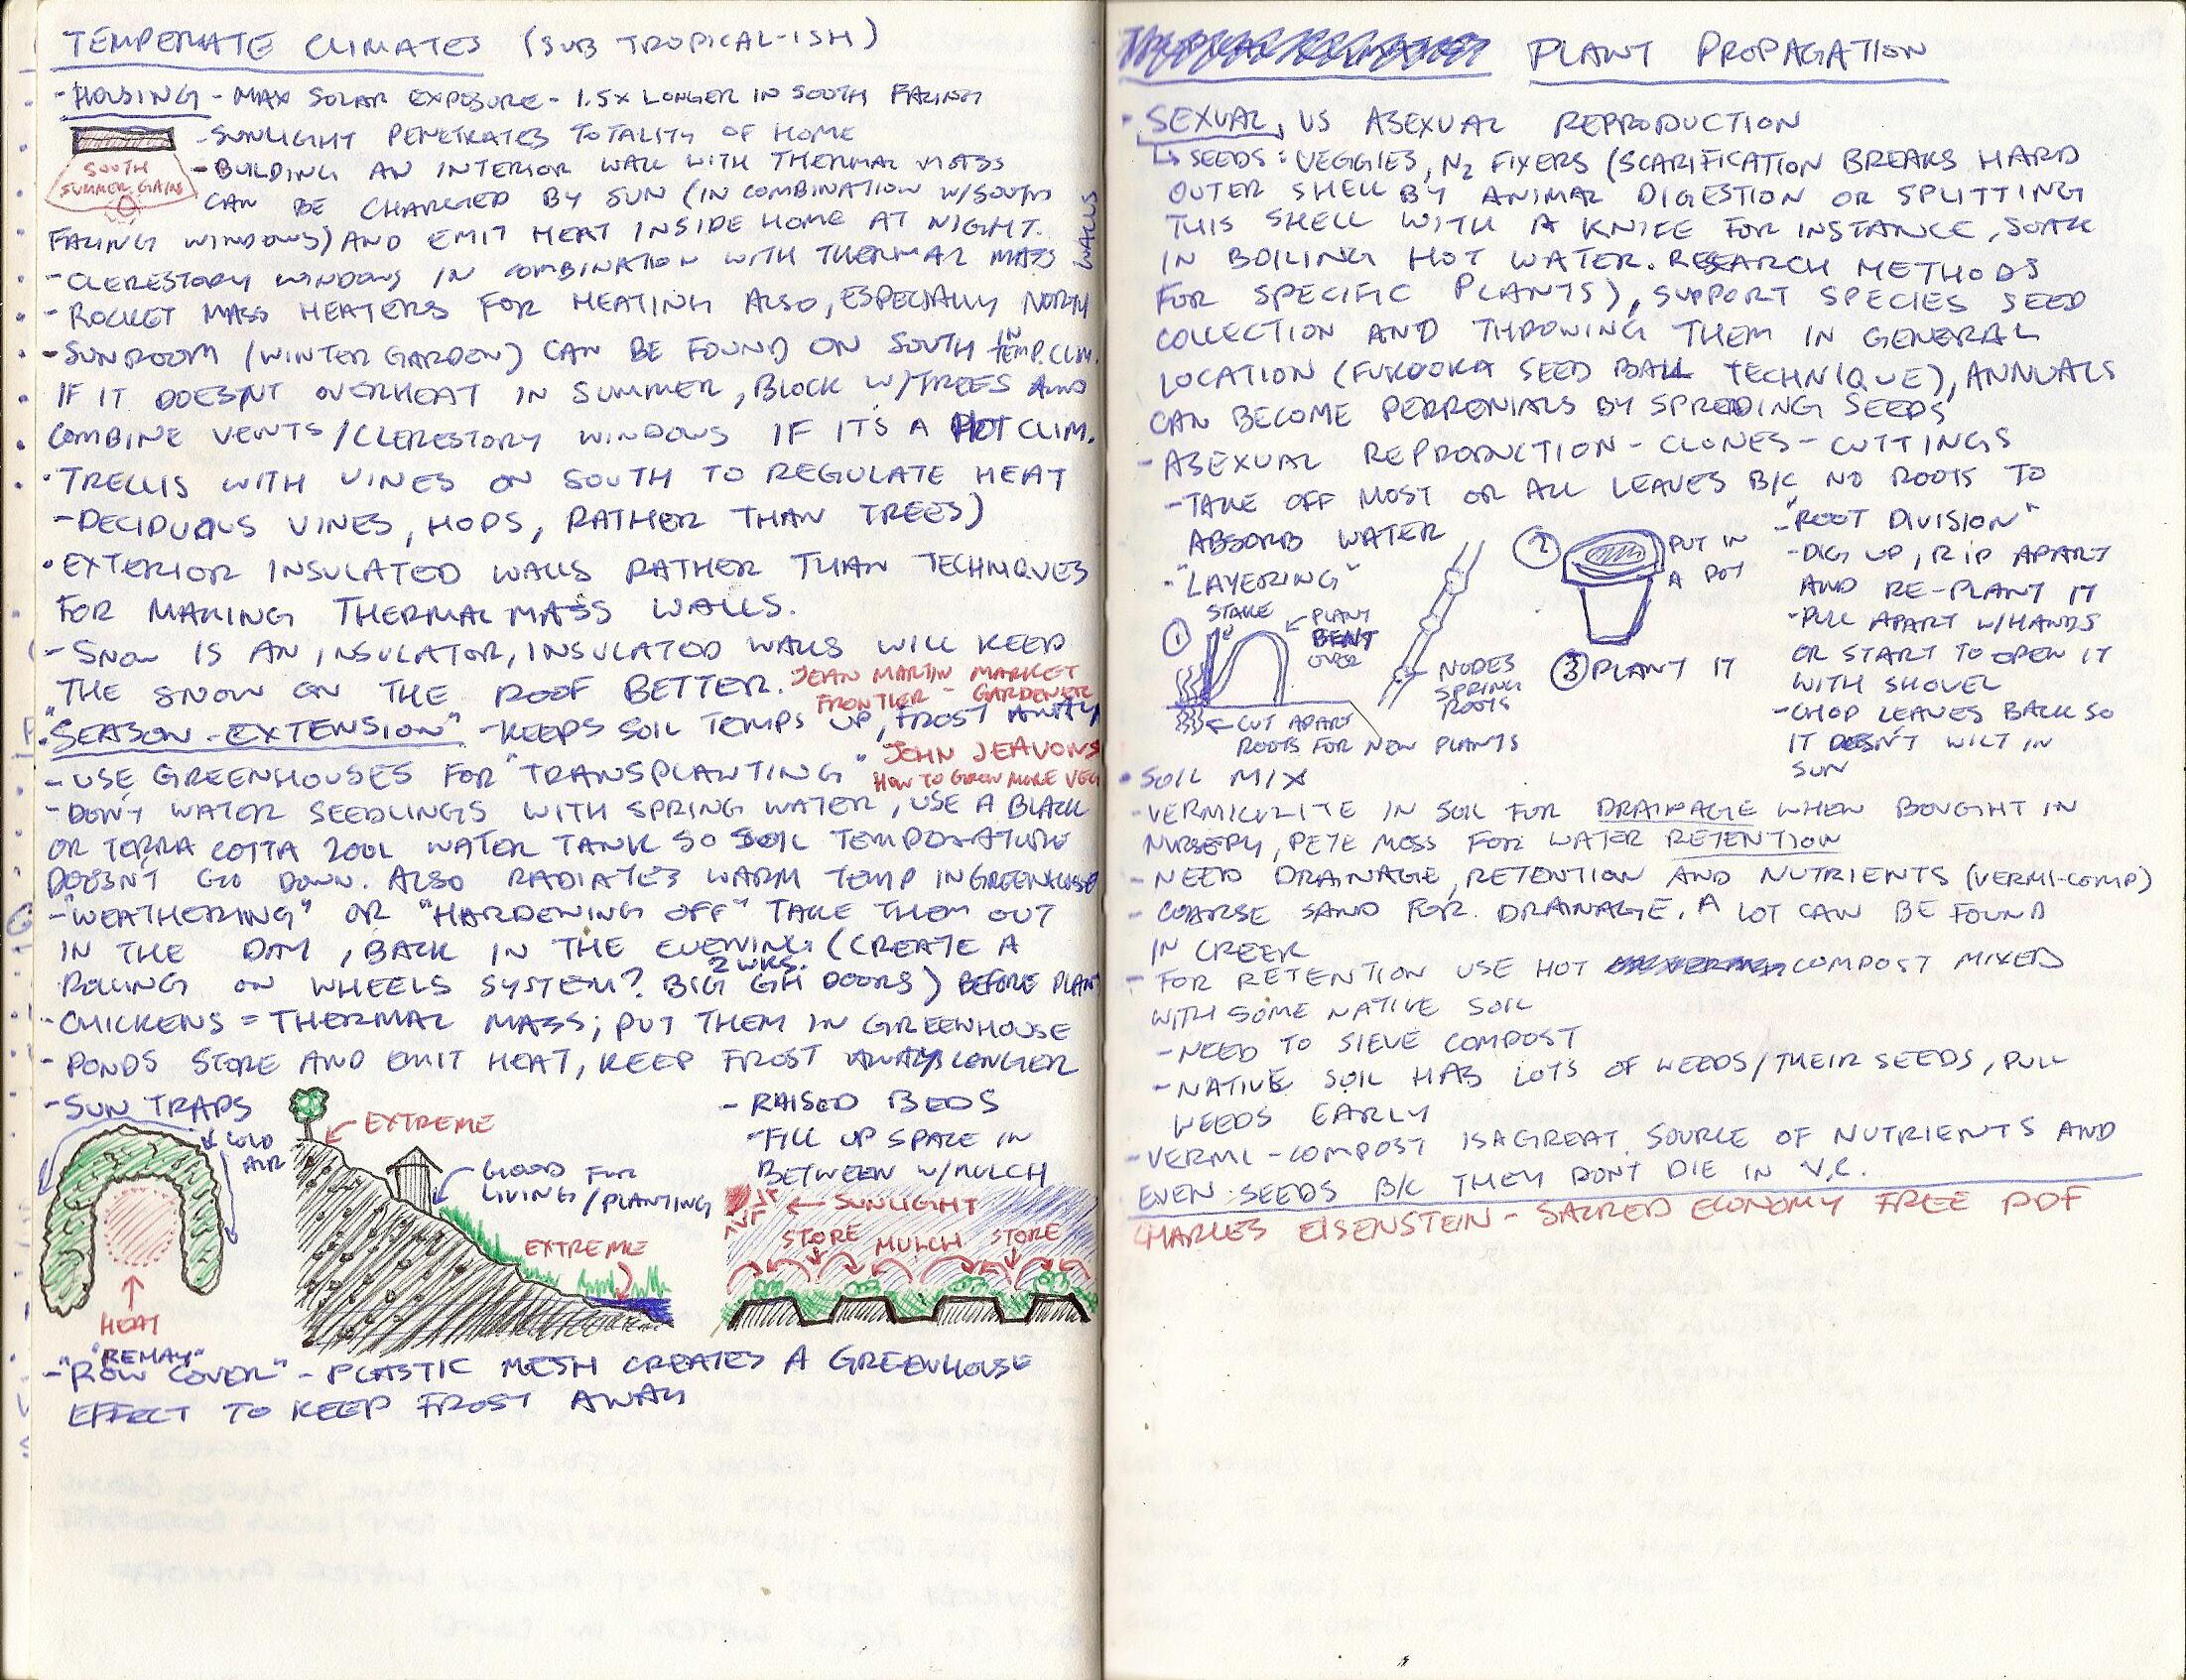 TEMPERATE CLIMATES (SUB TROPICAL-ISH)
- HOUSING - MAX SOLAR EXPOSURE - 1.5X LONGER IN SOUTH FACING
- SUNLIGHT PENETRATES TOTALITY OF HOME
SOUTH
SUMMER GAINS
- BUILDING AN INTERIOR WALL WITH THERMAL MASS
CAN BE CHARGED BY SUN (IN COMBINATION W/SOUTH
FACING WINDOWS) AND EMIT HEAT INSIDE HOME AT NIGHT.
- CLERESTORY WINDOWS IN COMBINATION WITH THERMAL MASS
WALLS
- ROCKET MASS HEATERS FOR HEATING ALSO, ESPECIALLY NORTH
- SUNROOM (WINTER GARDEN) CAN BE FOUND ON SOUTH IN TEMP. CLIM.
IF IT DOESNT OVERHEAT IN SUMMER, BLOCK W/TREES AND
COMBINE VENTS/CLERESTORY WINDOWS IF ITS A HOT CLIM.
• TRELLIS WITH VINES ON SOUTH TO REGULATE HEAT
- DECIDUOUS VINES, HOPS, RATHER THAN TREES)
• EXTERIOR INSULATED WALLS RATHER THAN TECHNIQUES
FOR MAKING THERMAL MASS WALLS.
- SNOW IS AN INSULATOR, INSULATED WALLS WILL KEEP
THE SNOW ON THE ROOF BETTER.
JEAN MARTIN MARKET
FRONTIER - GARDENER
• "SEASON-EXTENSION" - KEEPS SOIL TEMPS UP, FROST AWAY
- USE GREENHOUSES FOR "TRANSPLANTING"
• JOHN JEAVONS
HOW TO GROW MORE VEG
- DON'T WATER SEEDLINGS WITH SPRING WATER, USE A BLACK
OR TERRA COTTA 200L WATER TANK SO SOIL TEMPERATURE
DOESN'T GO DOWN. ALSO RADIATES WARM TEMP IN GREENHOUSE
- "WEATHERING" OR "HARDENING OFF" TAKE THEM OUT
IN THE DAY, BACK IN THE EVENING (CREATE A
ROLLING ON WHEELS SYSTEM? BIG GH DOORS) 2 WKS. BEFORE PLANT
- CHICKENS = THERMAL MASS; PUT THEM IN GREENHOUSE
- PONDS STORE AND EMIT HEAT, KEEP FROST AWAY LONGER
- SUN TRAPS
COLD
AIR
HEAT
EXTREME
GOOD FOR
LIVING/PLANTING
EXTREME
- RAISED BEDS
- FILL UP SPACE IN
BETWEEN W/MULCH
SUNLIGHT
STORE MULCH STORE
"REMAY"
- "ROW COVER" - PLASTIC MESH CREATES A GREENHOUSE
EFFECT TO KEEP FROST AWAY
PLANT PROPAGATION
• SEXUAL, VS ASEXUAL REPRODUCTION
↳ SEEDS: VEGGIES, N2 FIXERS (SCARIFICATION BREAKS HARD
OUTER SHELL BY ANIMAL DIGESTION OR SPLITTING
THIS SHELL WITH A KNIFE FOR INSTANCE, SOAK
IN BOILING HOT WATER. RESEARCH METHODS
FOR SPECIFIC PLANTS), SUPPORT SPECIES SEED
COLLECTION AND THROWING THEM IN GENERAL
LOCATION (FUKUOKA SEED BALL TECHNIQUE), ANNUALS
CAN BECOME PERRENIALS BY SPREDING SEEDS
- ASEXUAL REPRODUCTION - CLONES - CUTTINGS
- TAKE OFF MOST OR ALL LEAVES B/C NO ROOTS TO
ABSORB WATER
- "LAYERING"
1
STAKE
PLANT
BENT
OVER
CUT APART
ROOTS FOR NEW PLANTS
NODES
SPRING
ROOTS
2
PUT IN
A POT
3 PLANT IT
- "ROOT DIVISION"
- DIG UP, RIP APART
AND RE-PLANT IT
- PULL APART W/HANDS
OR START TO OPEN IT
WITH SHOVEL
- CHOP LEAVES BACK SO
IT DOESN'T WILT IN
SUN
• SOIL MIX
- VERMICULITE IN SOIL FOR DRAINAGE WHEN BOUGHT IN
NURSERY, PETE MOSS FOR WATER RETENTION
- NEED DRAINAGE, RETENTION AND NUTRIENTS (VERMI-COMP)
- COARSE SAND FOR DRAINAGE. A LOT CAN BE FOUND
IN CREEK
- FOR RETENTION USE HOT COMPOST MIXED
WITH SOME NATIVE SOIL
- NEED TO SIEVE COMPOST
- NATIVE SOIL HAS LOTS OF WEEDS/THEIR SEEDS, PULL
WEEDS EARLY
- VERMI-COMPOST IS A GREAT SOURCE OF NUTRIENTS AND
EVEN SEEDS B/C THEY DON'T DIE IN V.C.
CHARLES EISENSTEIN - SACRED ECONOMY FREE PDF